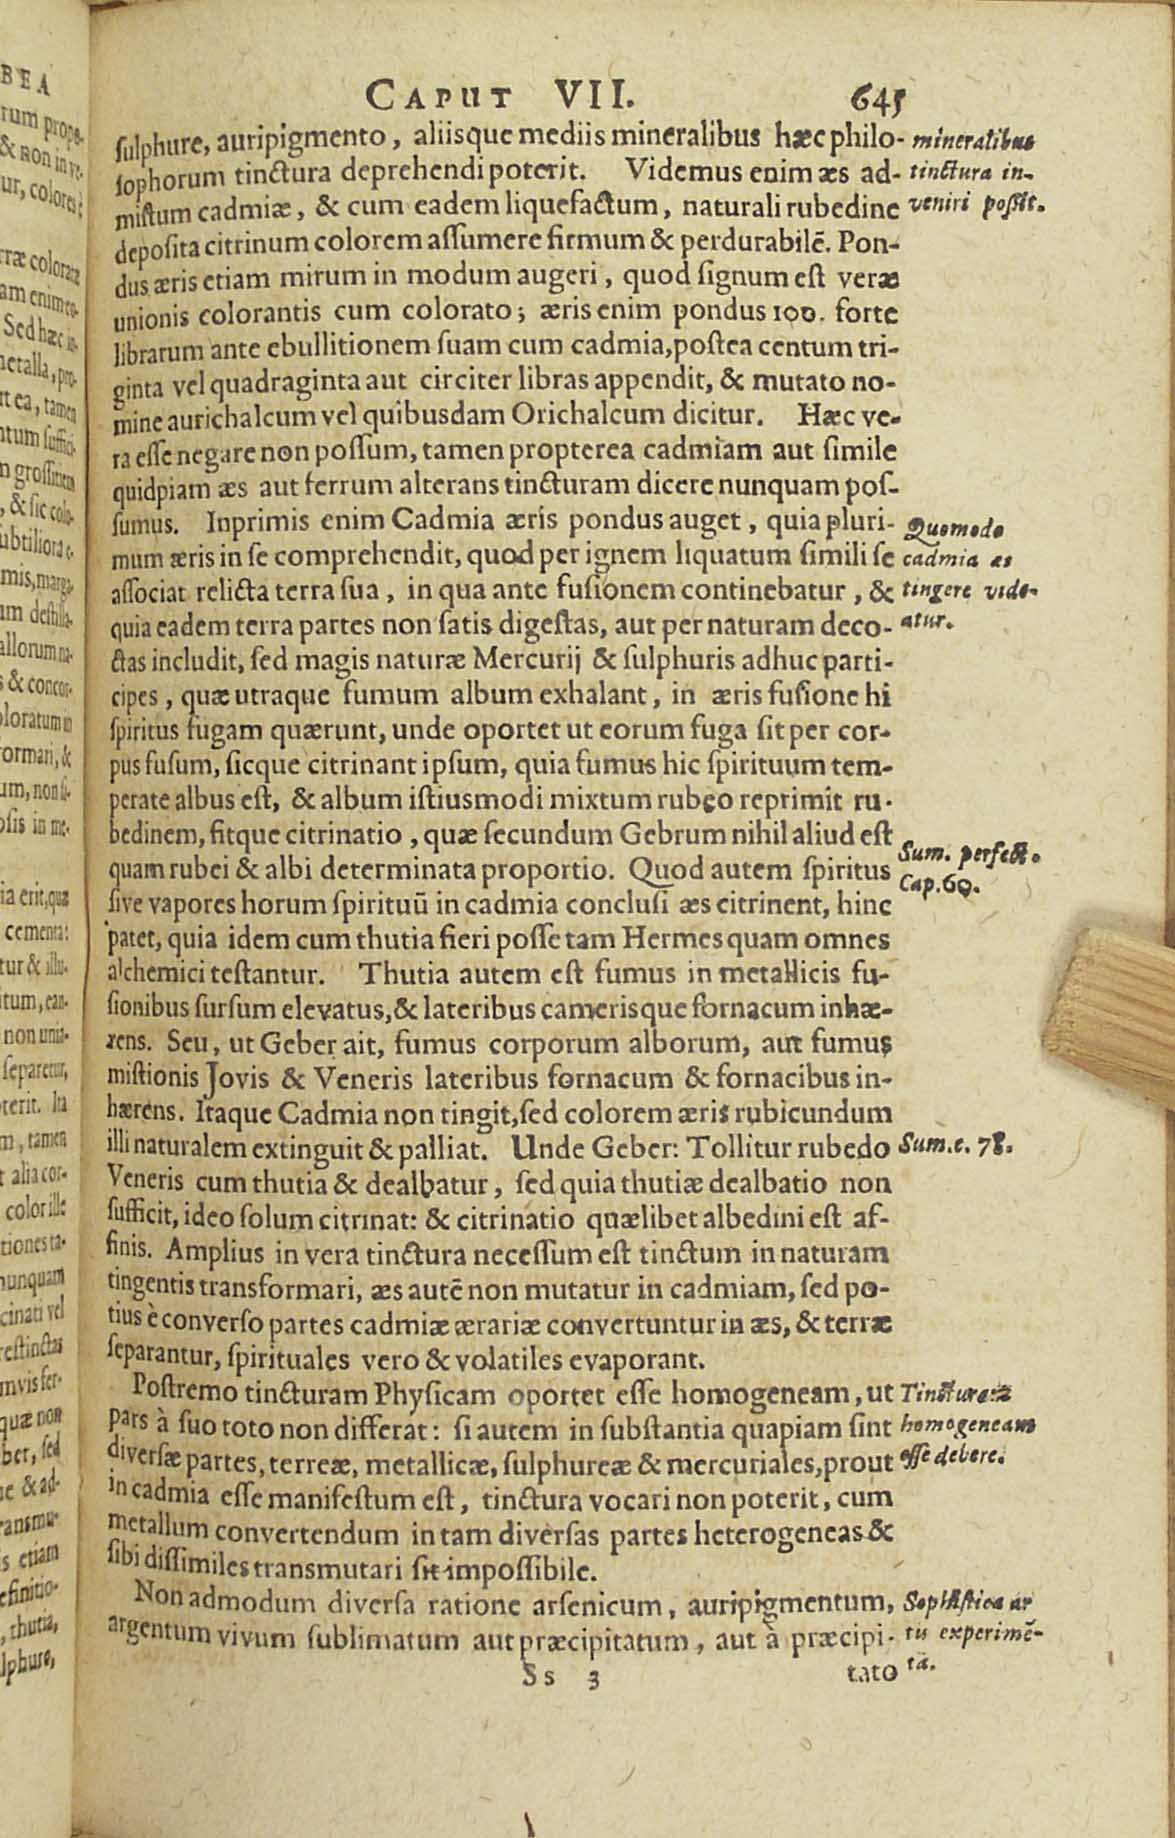 CAPUT VII. 645
sulphure, auripigmento, aliisque mediis mineralibus hæc philo-
sophorum tinctura deprehendi poterit. Videmus enim æs ad-
mistum cadmiæ, & cum eadem liquefactum, naturali rubedine
deposita citrinum colorem assumere firmum & perdurabilē. Pon-
dus æris etiam mirum in modum augeri, quod signum est veræ
unionis colorantis cum colorato; æris enim pondus 100. forte
librarum ante ebullitionem suam cum cadmia, postea centum tri-
ginta vel quadraginta aut circiter libras appendit, & mutato no-
mine aurichalcum vel quibusdam Orichalcum dicitur. Hæc ve-
ra esse negare non possum, tamen propterea cadmiam aut simile
quidpiam æs aut ferrum alterans tincturam dicere nunquam pos-
sumus. Inprimis enim Cadmia æris pondus auget, quia pluri-
mum æris in se comprehendit, quod per ignem liquatum simili se
associat relicta terra sua, in qua ante fusionem continebatur, &
quia eadem terra partes non satis digestas, aut per naturam deco-
ctas includit, sed magis naturæ Mercurij & sulphuris adhuc parti-
cipes, quæ utraque fumum album exhalant, in æris fusione hi
spiritus fugam quærunt, unde oportet ut eorum fuga sit per cor-
pus fusum, sicque citrinant ipsum, quia fumus hic spirituum tem-
perate albus est, & album istiusmodi mixtum rubeo reprimit ru-
bedinem, fitque citrinatio, quæ secundum Gebrum nihil aliud est
quam rubei & albi determinata proportio. Quod autem spiritus
sive vapores horum spirituū in cadmia conclusi æs citrinent, hinc
patet, quia idem cum thutia fieri posse tam Hermes quam omnes
alchemici testantur. Thutia autem est fumus in metallicis fu-
sionibus sursum elevatus, & lateribus camerisque fornacum inhæ-
rens. Seu, ut Geber ait, fumus corporum alborum, aut fumus
mistionis Jovis & Veneris lateribus fornacum & fornacibus in-
hærens. Itaque Cadmia non tingit, sed colorem æris rubicundum
illi naturalem extinguit & palliat. Unde Geber: Tollitur rubedo
Veneris cum thutia & dealbatur, sed quia thutiæ dealbatio non
sufficit, ideo solum citrinat: & citrinatio quælibet albedini est af-
finis. Amplius in vera tinctura necessum est tinctum in naturam
tingentis transformari, æs autē non mutatur in cadmiam, sed po-
tius è converso partes cadmiæ ærariæ convertuntur in æs, & terræ
separantur, spirituales vero & volatiles evaporant.
Postremo tincturam Physicam oportet esse homogeneam, ut
pars à suo toto non differat: si autem in substantia quapiam sint
diversæ partes, terreæ, metallicæ, sulphureæ & mercuriales, prout
in cadmia esse manifestum est, tinctura vocari non poterit, cum
metallum convertendum in tam diversas partes heterogeneas &
sibi dissimiles transmutari sit impossibile.
Non admodum diversa ratione arsenicum, auripigmentum,
argentum vivum sublimatum aut præcipitatum, aut à præcipi-
Ss 3 tato
mineralibus
tinctura in-
veniri possit.
Quomodo
cadmia æs
tingere vide-
atur.
Sum. perfect.
Cap. 60.
Sum. c. 78.
Tincturam
homogeneam
esse debere.
Sophistica ar
tis experimē-
ta.